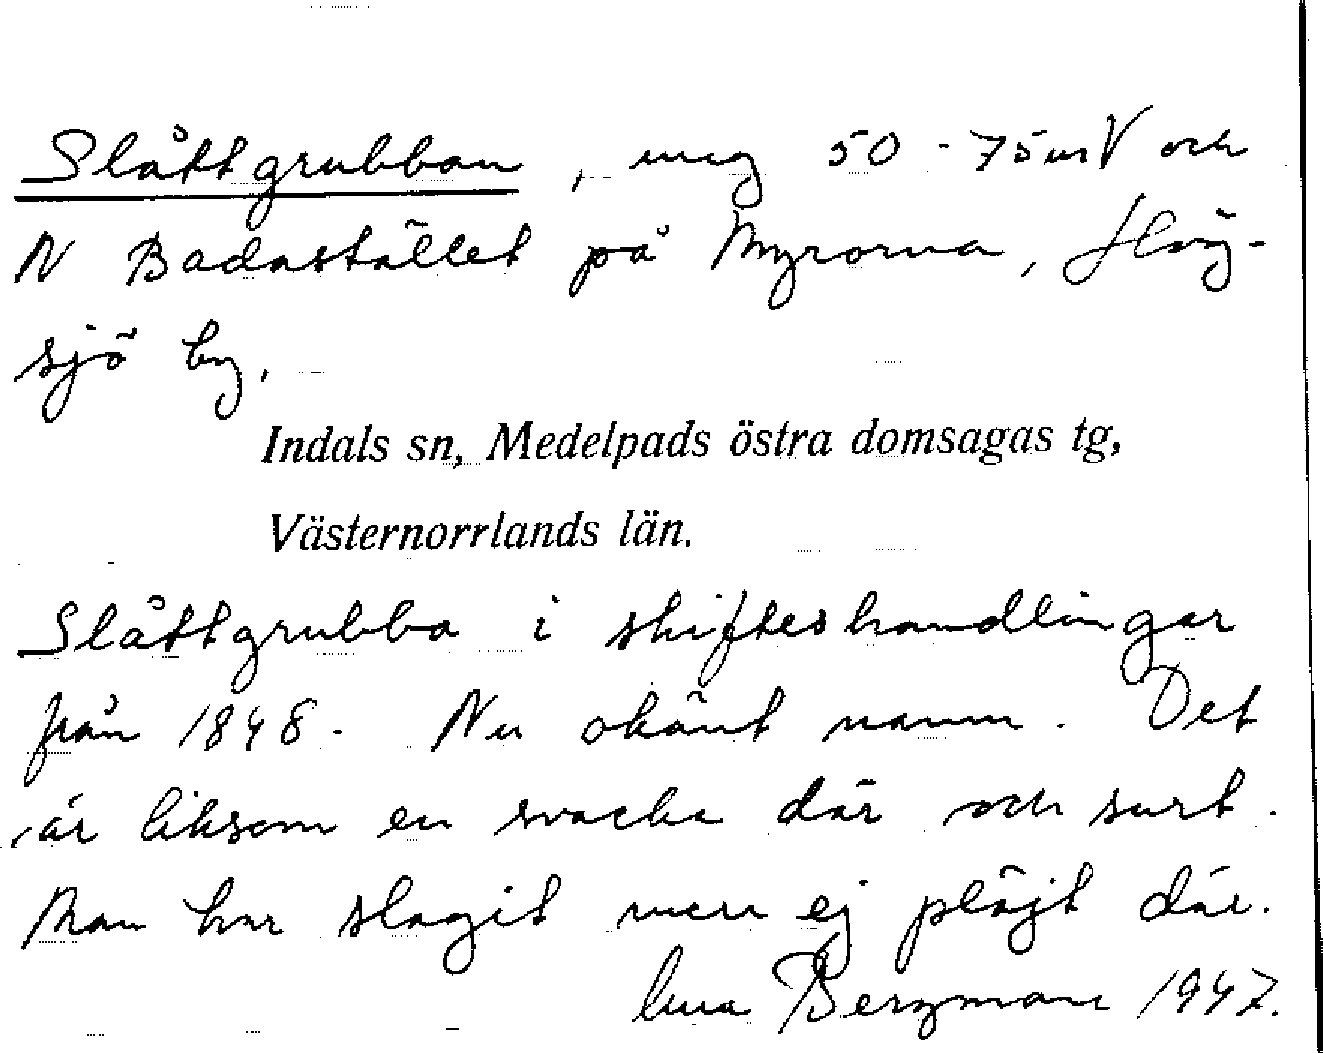 Slåttgrubban, myg 50-75 m V och
N Badnstället på Myrorna, Häg-
sjö by.
Indals sn, Medelpads östra domsagas tg,
Västernorrlands län.
Slåttgrubba i skifteshandlingar
från 1848. Nu okänt namn. Det
är liksom en svacka där och surt.
Man har slagit men ej plöjt där.
Bergman 1947.